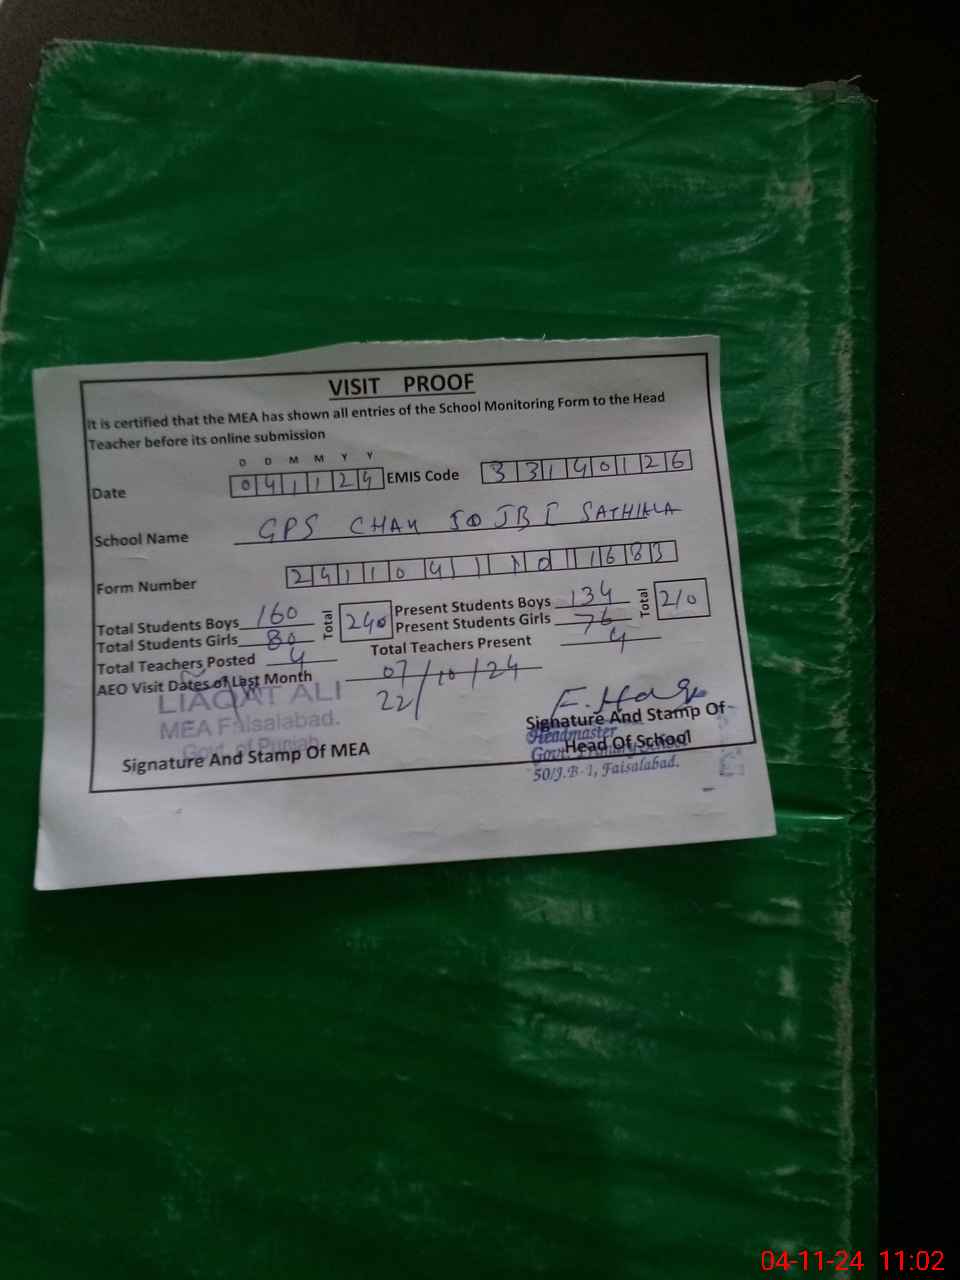 VISIT PROOF
It is certified that the MEA has shown all entries of the School Monitoring Form to the Head
Teacher before its online submission
D D M M Y Y
Date 041124 EMIS Code 33140126
School Name GPS CHAK 50 JB I SATHIALA
Form Number 241104 1683
Total Students Boys 160 Total 240 Present Students Boys 134 Total 210
Total Students Girls 80 Present Students Girls 76
Total Teachers Posted 4 Total Teachers Present 4
AEO Visit Dates of Last Month 07/10/24
22/
LIAQAT ALI
MEA Faisalabad.
Govt. of Punjab
Signature And Stamp Of MEA
Signature And Stamp Of
Head Of School
Headmaster
Govt. Primary School
50/J.B-1, Faisalabad.
04-11-24 11:02